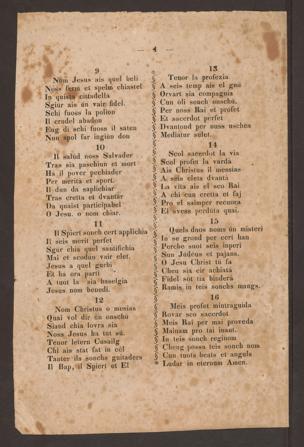 — 4 —
9
Nom Jesus ais quel beli
Noss ferm et spelm chiastel
In quista cittadella
Sgiür ais ün vair fidel.
Schi fuoss la polion
Il crudel abadon
Eug di schi fuoss il saten
Nun spol far ingiün don
10
Il salüd noss Salvader
Tras sia paschiun et mort
Ha il pover pechiader
Per merita et sport.
Il dun da saplichiar
Tras cretta et dvantar
Da quaist participabel
O Jesu. o nom chiar.
11
Il Spiert sonch cert applichia
Il seis merit perfet
Sgür chia quel santifichia
Mai et scodun vair elet.
Jesus a quel gurbi
Et ha era parti
A tuot la sia baselgia
Jesus nom benedi.
12
Nom Christus o mesias
Quai vol dir ün onschü
Siand chia lovra sia
Noss Jesus ha tut sü.
Tenor letern Cusailg
Chi ais stat fat in cel
Tanter ils sonchs guitaders
Il Bap, il Spiert et El
13
Tenor la profezia
A seis temp ais el gnü
Orvart sia compagnia
Cun öli sonch onschü.
Per noss Rai et profet
Et sacerdot perfet
Dvantond per nuss uschea
Mediatur sulet.
14
Scol sacerdot la via
Scol profet la varda
Ais Christus il messias
A seis eleta dvanta
La vita ais el sco Rai
A chi cun cretta et faj
Pro el saimper recuorra
El svess perdüta quai.
15
Quels duos noms ün misteri
In se grond per cert han
Perche suot seis imperi
Sun Judeus et pajans.
O Jesu Christ tü fa
Cheu six eir achiasà
Fidel sot tia bindera
Ramis in teis sonchs mangs.
16
Meis profet mintraguida
Rovar sco sacerdot
Meis Rai per mai proveda
Mainam pro tai inant.
In teis sonch reginom
Cheug possa teis sonch nom
Cun tuots beats et anguls
Ludar in eternum Amen.